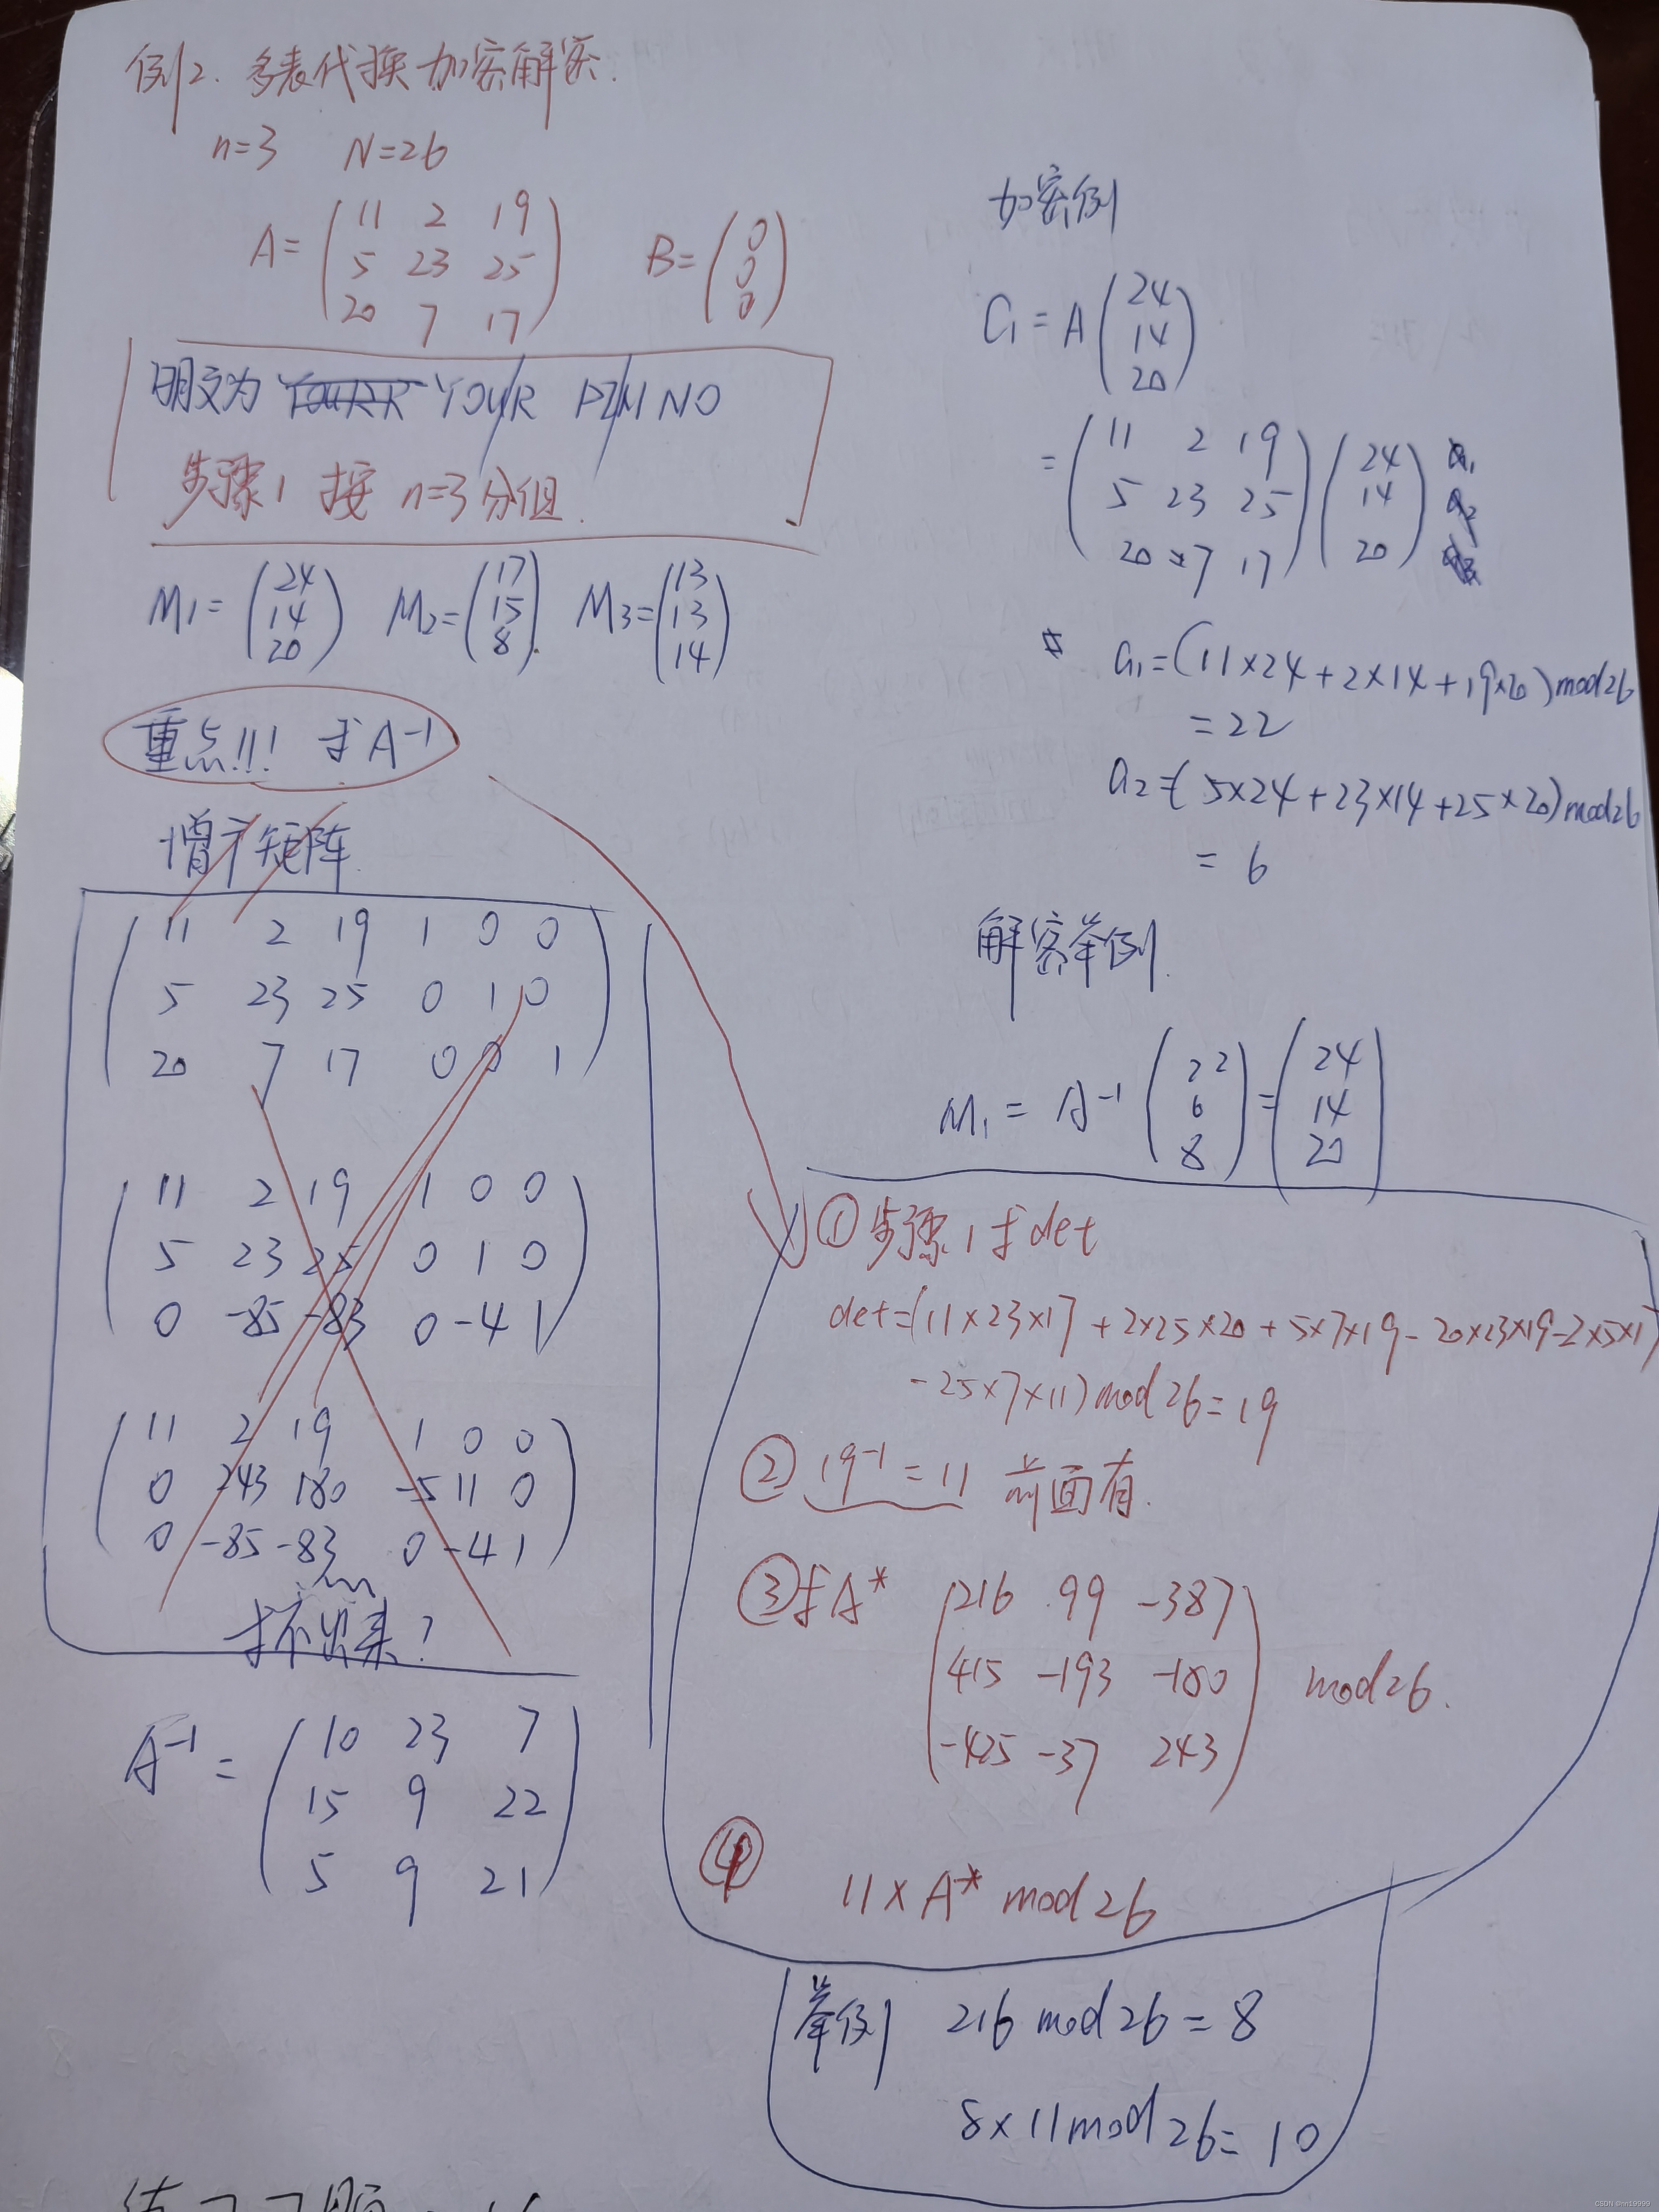 例2. 多表代换加密解密.
n=3 N=26
A= ( 11 2 19
5 23 25
20 7 17 )
B= ( 0
0
0 )
明文为 YOUR PIN NO
步骤1 按 n=3分组.
M1= ( 24
14
20 )
M2= ( 17
15
8 )
M3= ( 13
13
14 )
重点!!! 求 A⁻¹
增广矩阵
( 11 2 19 1 0 0
5 23 25 0 1 0
20 7 17 0 0 1 )
( 11 2 19 1 0 0
5 23 25 0 1 0
0 -85 -83 0 -4 1 )
( 11 2 19 1 0 0
0 243 180 -5 11 0
0 -85 -83 0 -4 1 )
求不出来?
A⁻¹ = ( 10 23 7
15 9 22
5 9 21 )
加密例
C1 = A ( 24
14
20 )
= ( 11 2 19
5 23 25
20 7 17 ) ( 24
14
20 )
a1=(11×24+2×14+19×20)mod26
=22
a2=(5×24+23×14+25×20)mod26
= 6
解密举例.
M1 = A⁻¹ ( 22
6
8 ) = ( 24
14
20 )
① 步骤1 求det
det=(11×23×17+2×25×20+5×7×19-20×23×19-2×5×17
-25×7×11)mod26=19
② 19⁻¹=11 前面有.
③ 求A* ( 216 99 -387
415 -193 -180
-425 -37 243 ) mod26.
④ 11×A* mod26
举例 216 mod26=8
8×11mod26=10
CSDN @nn19999